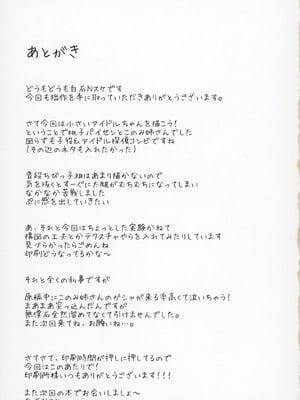 あとがき
どうもどうも白石Nスケです
今回も拙作を手に取っていただきありがとうございます。
さて今回は小さいアイドルちゃんを描こう!
ということで桃子パイセンとこのみ姉さんでした
図らずも子役&アイドル探偵コンビですね
(その辺のネタも入れたかった)
普段ちびっ子組はあまり描かないので
気を抜くとすーぐに太腿がむちむちになってしまい
なかなか苦戦しました
に感を出していきたい
あ、それと今回はちょっとした実験かねて
構図の工夫とかテクスチャやらを入れてみたりしています
見づらかったらごめんね
印刷どうなってるかな〜
それと全くの私事ですが
原稿中にこのみ姉さんのガシャが来る率高くて泣いちゃう!
まあまあ突っ込んだんですが
無償石全然溜めてなくて引けませんでした。
また次回来てね、お願いね…。
さてさて、印刷時間が押しに押してるので
今回はこのあたりで!
印刷所様いつもありがとうございます!!!
また次回の本でお会いしましょ〜